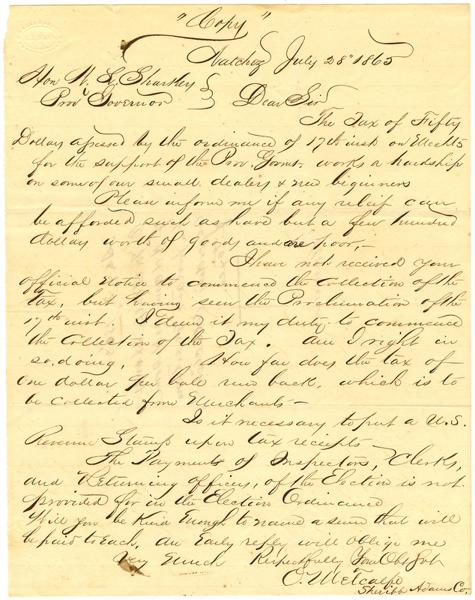 "Copy"
Natchez July 28th 1865
Hon W. L. Sharkey
Provl Governor } Dear Sir
The Tax of Fifty
Dollars assessed by the ordinance of 17th inst on Merchts
for the support of the Prov. Govmt. works a hardship
on some of our small dealers & new beginners
Please inform me if any relief can
be afforded such as have but a few hundred
dollars worth of goods and are poor,—
I have not received your
official notice to commence the collection of the
tax, but having seen the Proclamation of the
17th inst. I deem it my duty to commence
the Collection of the Tax. Am I right in
so doing, How far does the tax of
one dollar per bale run back, which is to
be collected from Merchants—
Is it necessary to put a U.S.
Revenue Stamp upon tax receipts—
The Payments of Inspectors, Clerks,
and Returning officers, of the Election is not
provided for in the Election Ordinance
Will you be Kind Enough to name a sum that will
be paid to Each, an Early reply will oblige me
Very Much Respectfully Your Obt Svt
O. Metcalfe
Sheriff Adams Co.